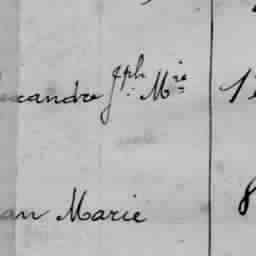 xandre Jph Mie 1
an Marie 8